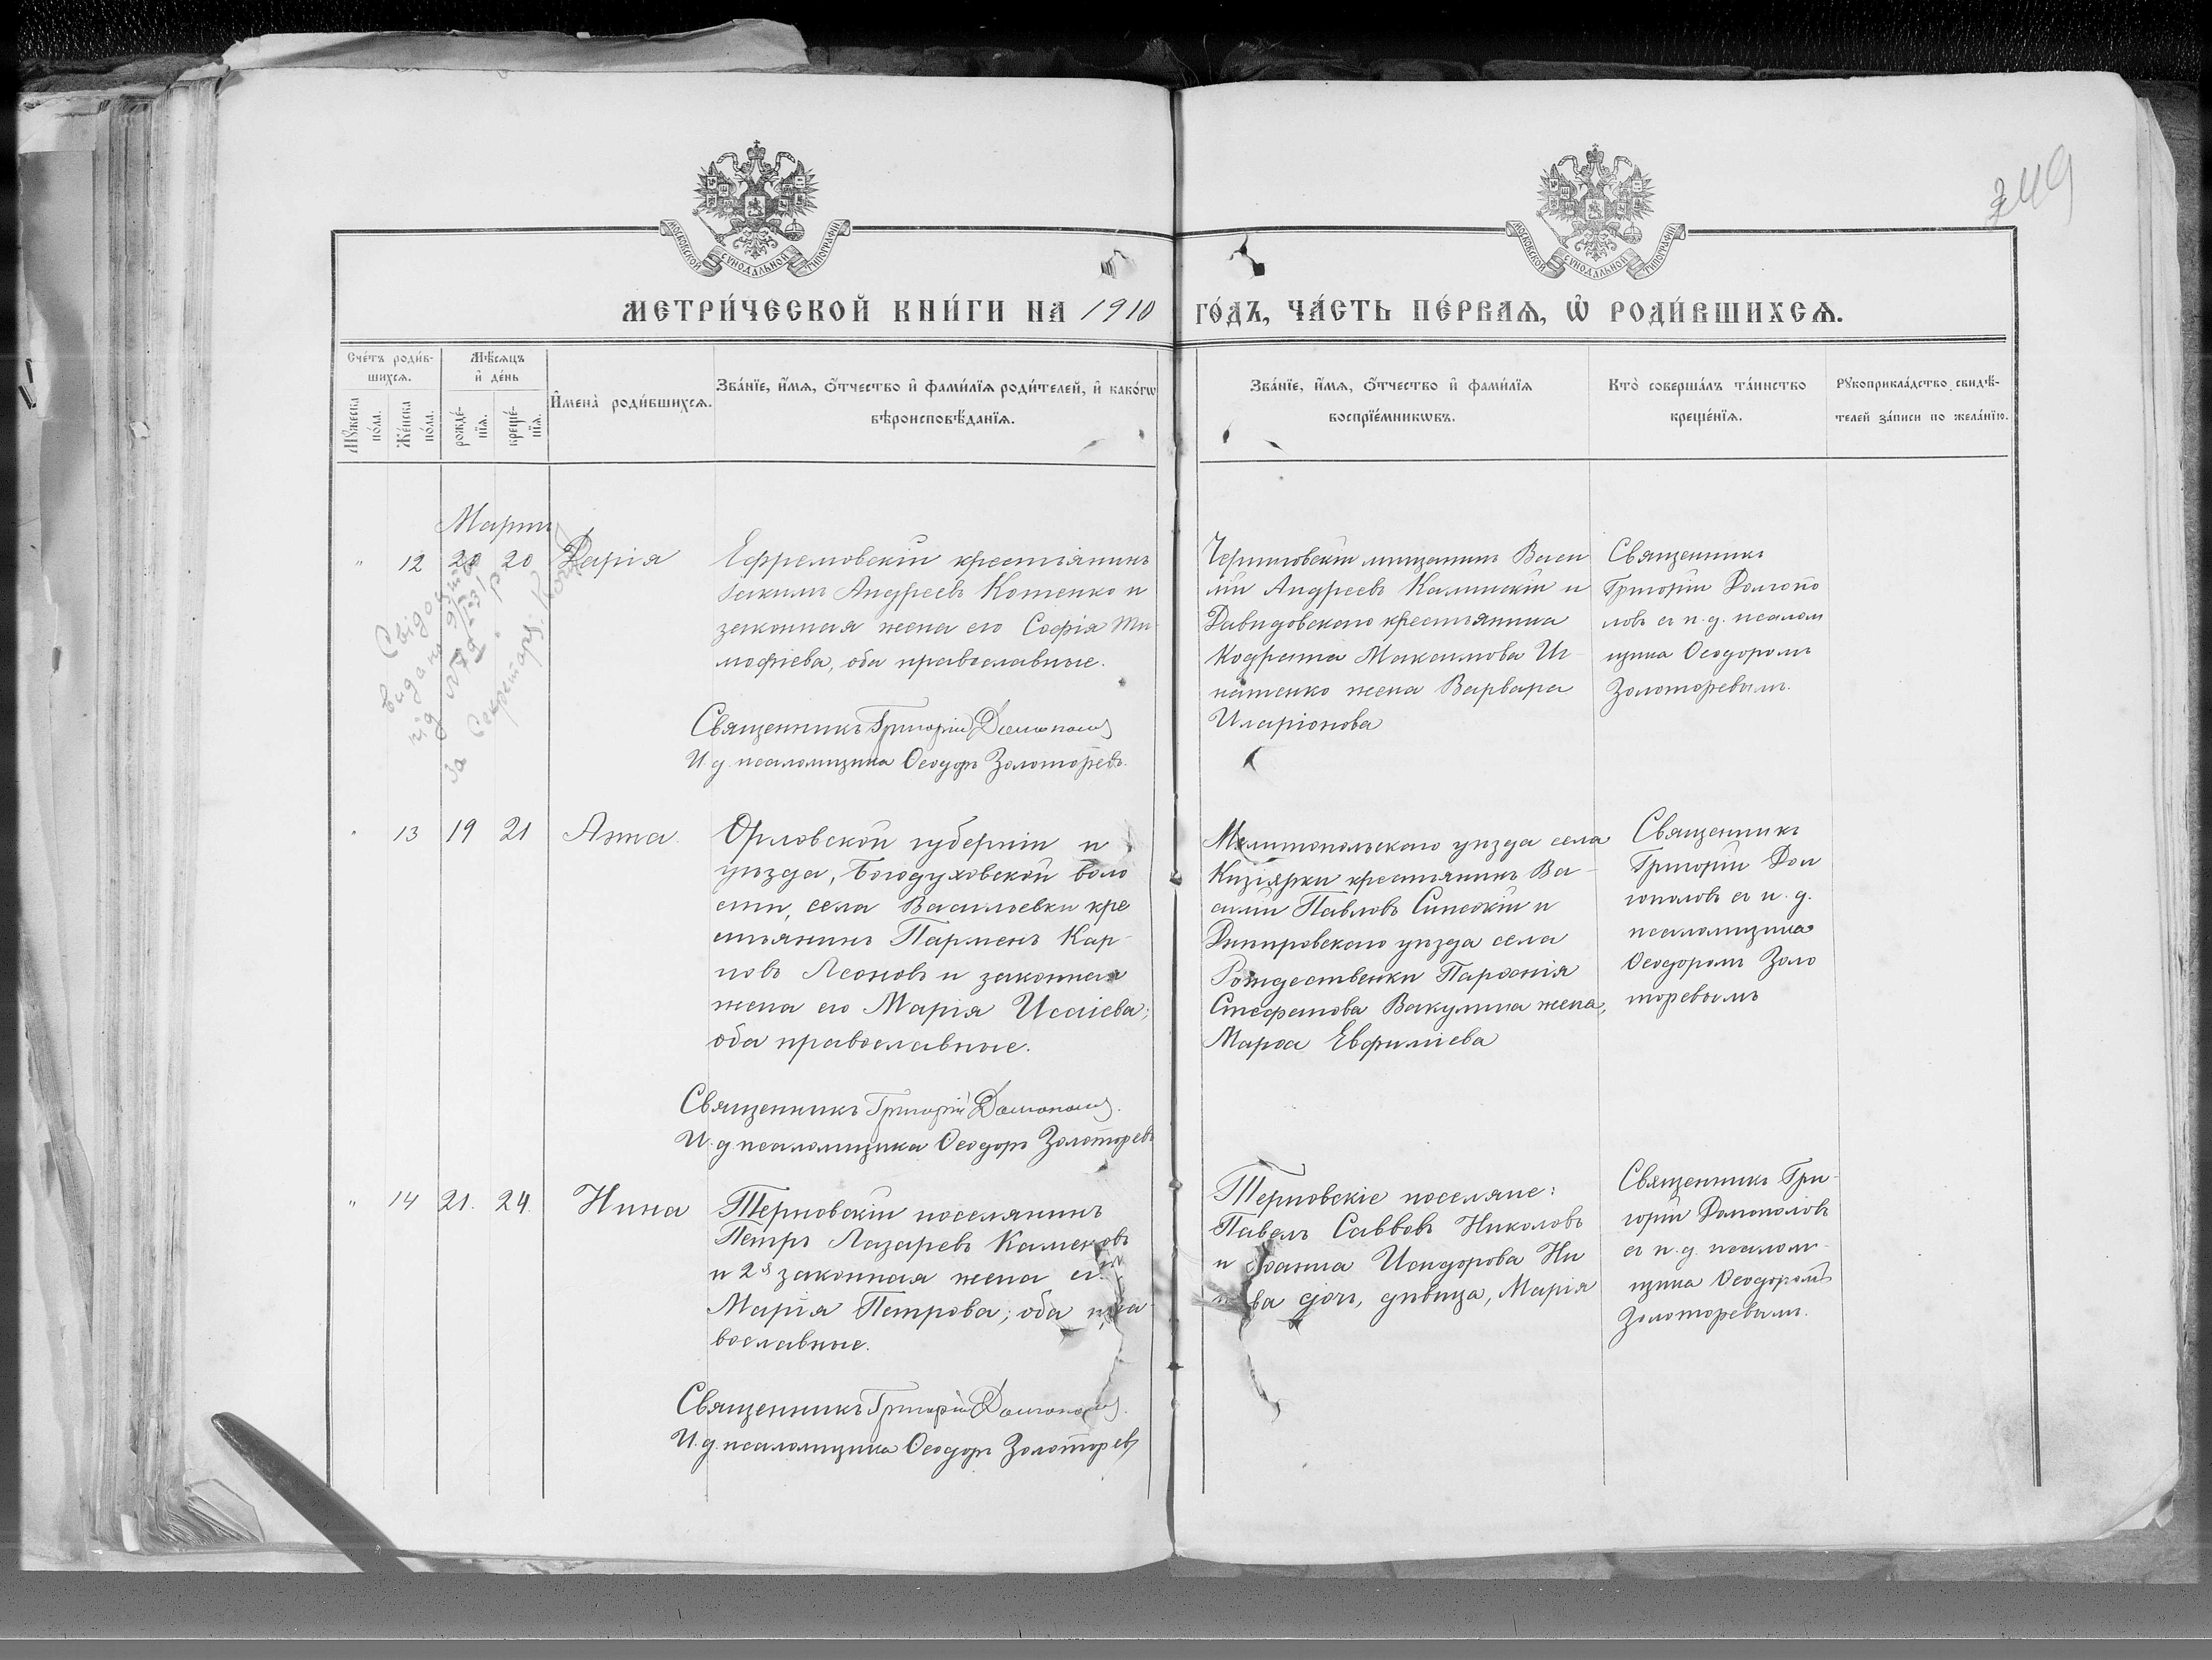 249
МОСКОВСКОЙ СѴНОДАЛЬНОЙ ТИПОГРАФІИ
МОСКОВСКОЙ СѴНОДАЛЬНОЙ ТИПОГРАФІИ
МЕТРИ́ЧЕСКОЙ КНИ́ГИ НА 1910 ГО́ДЪ, ЧА́СТЬ ПЕ́РВАѦ, Ѡ҆ РОДИ́ВШИХСѦ.
Сче́тъ роди́в-
шихсѧ.
Мꙋ́жеска по́ла.
Же́нска по́ла.
Мѣ́сѧцъ
и҆ де́нь
рожде́-
нїѧ.
креще́-
нїѧ.
И҆мена̀ роди́вшихсѧ.
Зва́нїе, и҆́мѧ, ѻ҆́тчество и҆ фами́лїѧ роди́телей, и҆ како́гѡ
вѣроисповѣ́данїѧ.
Зва́нїе, и҆́мѧ, ѻ҆́тчество и҆ фами́лїѧ
воспрїе́мникѡвъ.
Кто̀ соверша́лъ та́инство
креще́нїѧ.
Рꙋкоприкла́дство свидѣ́-
телей за́писи по жела́нїю.
Мартъ
" 12 20 20 Дарія
Ефремовскій крестьянинъ
Іакимъ Андреевъ Котенко и
законная жена его Софія Ти-
мофіева, оба православные.
Священникъ Григорій Долгополов
И. д. псаломщика Ѳеодоръ Золоторевъ.
Свідоц
видано
під №
За Секретаря
Черниговскій мѣщанинъ Васи
лій Андреевъ Калинскій и
Давидовскаго крестьянина
Кодрата Максимова Иг-
натенко жена Варвара
Иларіонова
Священникъ
Григорій Долгопо
ловъ съ и. д. псалом
щика Ѳеодоромъ
Золоторевымъ.
" 13 19 21 Анна.
Орловской губерніи и
уѣзда, Богодуховской воло
сти, села Васильевки кре
стьянинъ Парменъ Кар-
повъ Леоновъ и законная
жена его Марія Исаіева;
оба православные.
Священникъ Григорій Долгополов.
И. д. псаломщика Ѳеодоръ Золоторевъ
Мелитопольскаго уѣзда села
Кизіярки крестьянинъ Ва-
силій Павловъ и
Днѣпровскаго уѣзда села
Рождественки
Стефанова Вакулина жена,
Марѳа Евфиміева
Священникъ
Григорій Дол
гополовъ съ и. д.
псаломщика
Ѳеодоромъ Золо
торевымъ
" 14 21. 24. Нина
Терновскій поселянинъ
Петръ Лазаревъ Каменовъ
и 2я законная жена его
Марія Петрова; оба пра-
вославные.
Священникъ Григорій Долгополов.
И. д. псаломщика Ѳеодоръ Золоторев
Терновскіе поселяне:
Павелъ Саввовъ Николовъ
и Исидорова Ни
ва дочь, дѣвица, Марія
Священникъ Гри-
горій Долгополовъ
съ и. д. псалом-
щика Ѳеодоромъ
Золоторевымъ.